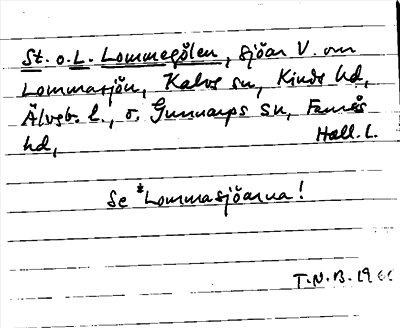 St. o. L. Lommegölen, sjöar V. om
Lommasjön, Kalvs sn, Kinds hd,
Älvsb. l., o. Gunnarps sn, Faurås
hd, Hall. l.
Se *Lommasjöarna!
T.N.B. 19